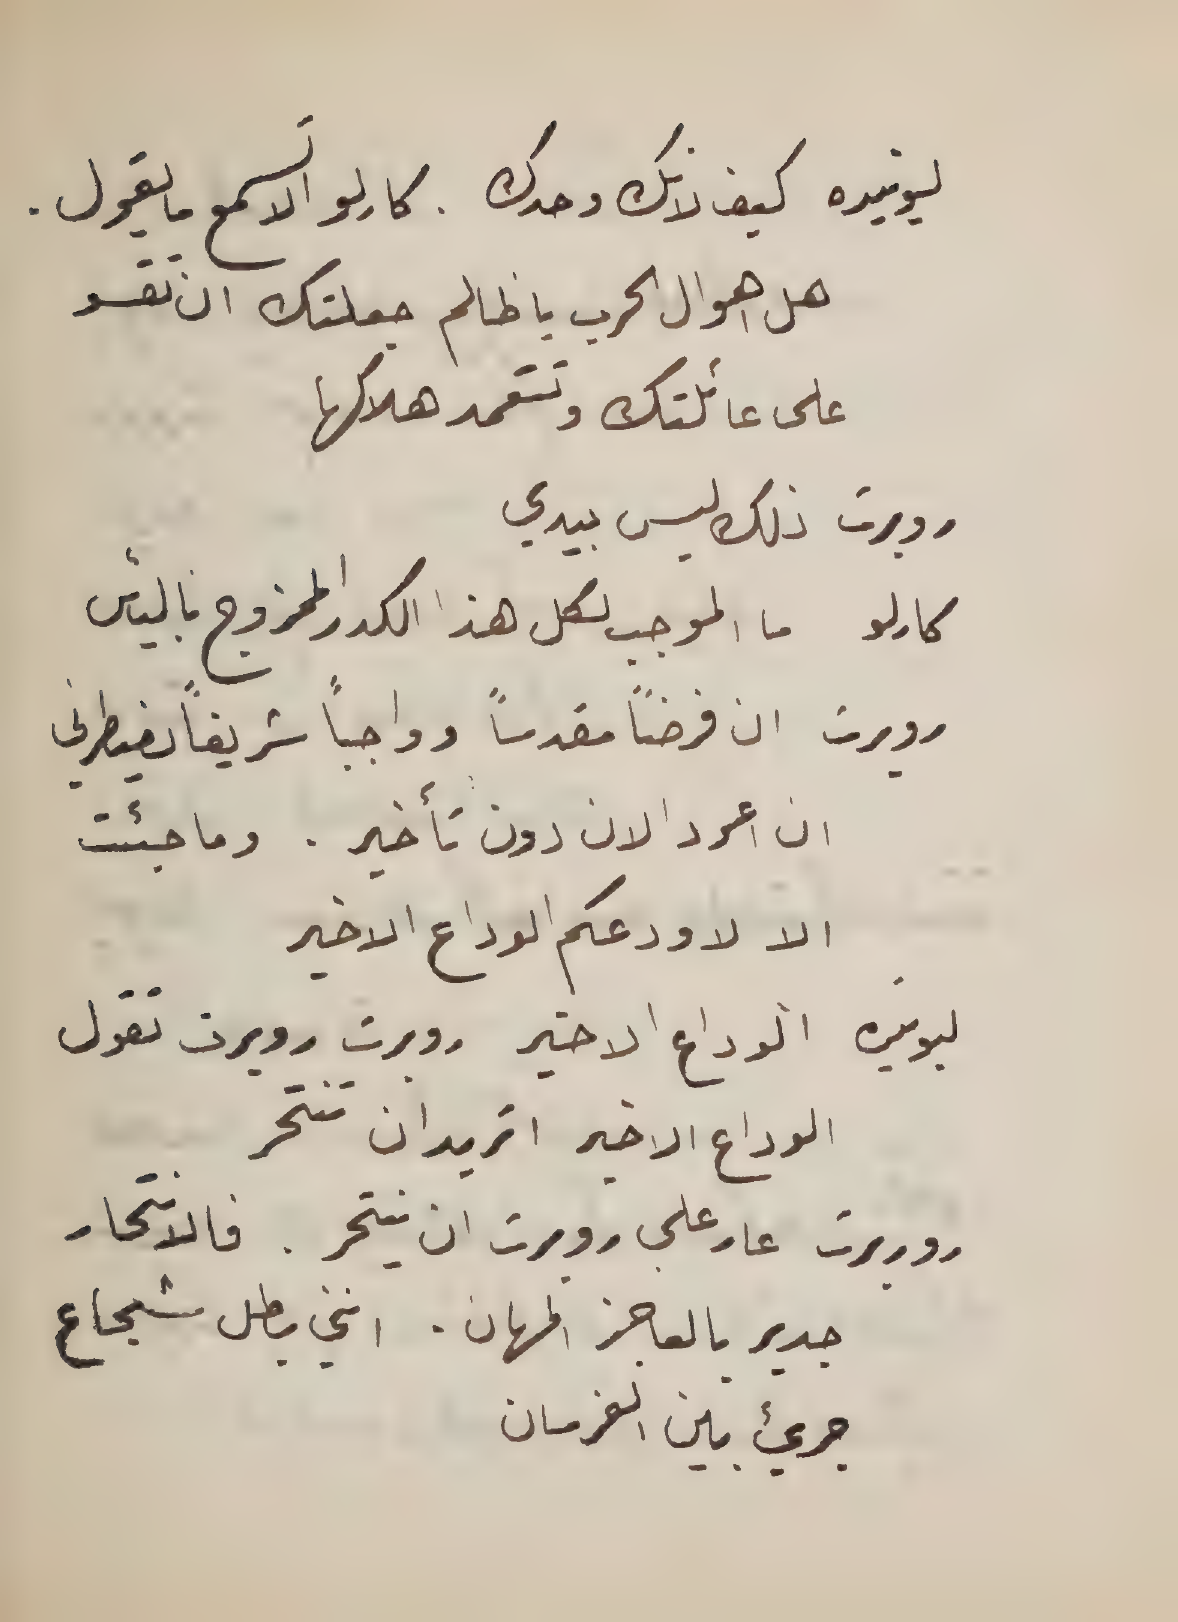 ليونيده كيف لانك وحدك . كارلو الا تسمع ما يقول .
هل اهوال الحرب يا ظالم جعلتك ان تقسو
على عائلتك وتتعمد هلاكها
روبرت ذلك ليس بيدي
كارلو ما الموجب لكل هذا الكدر الممزوج باليأس
روبرت ان فرضاً مقدساً وواجباً شريفاً يضطرني
ان اعود الان دون تأخير . وما جئت
الا لاودعكم الوداع الاخير
ليونيده الوداع الاخير روبرت روبرت تقول
الوداع الاخير اتريد ان تنتحر
روبرت عار على روبرت ان ينتحر . فالانتحار
جدير بالعاجز المهان . انني بطل شجاع
جريئ بين الفرسان